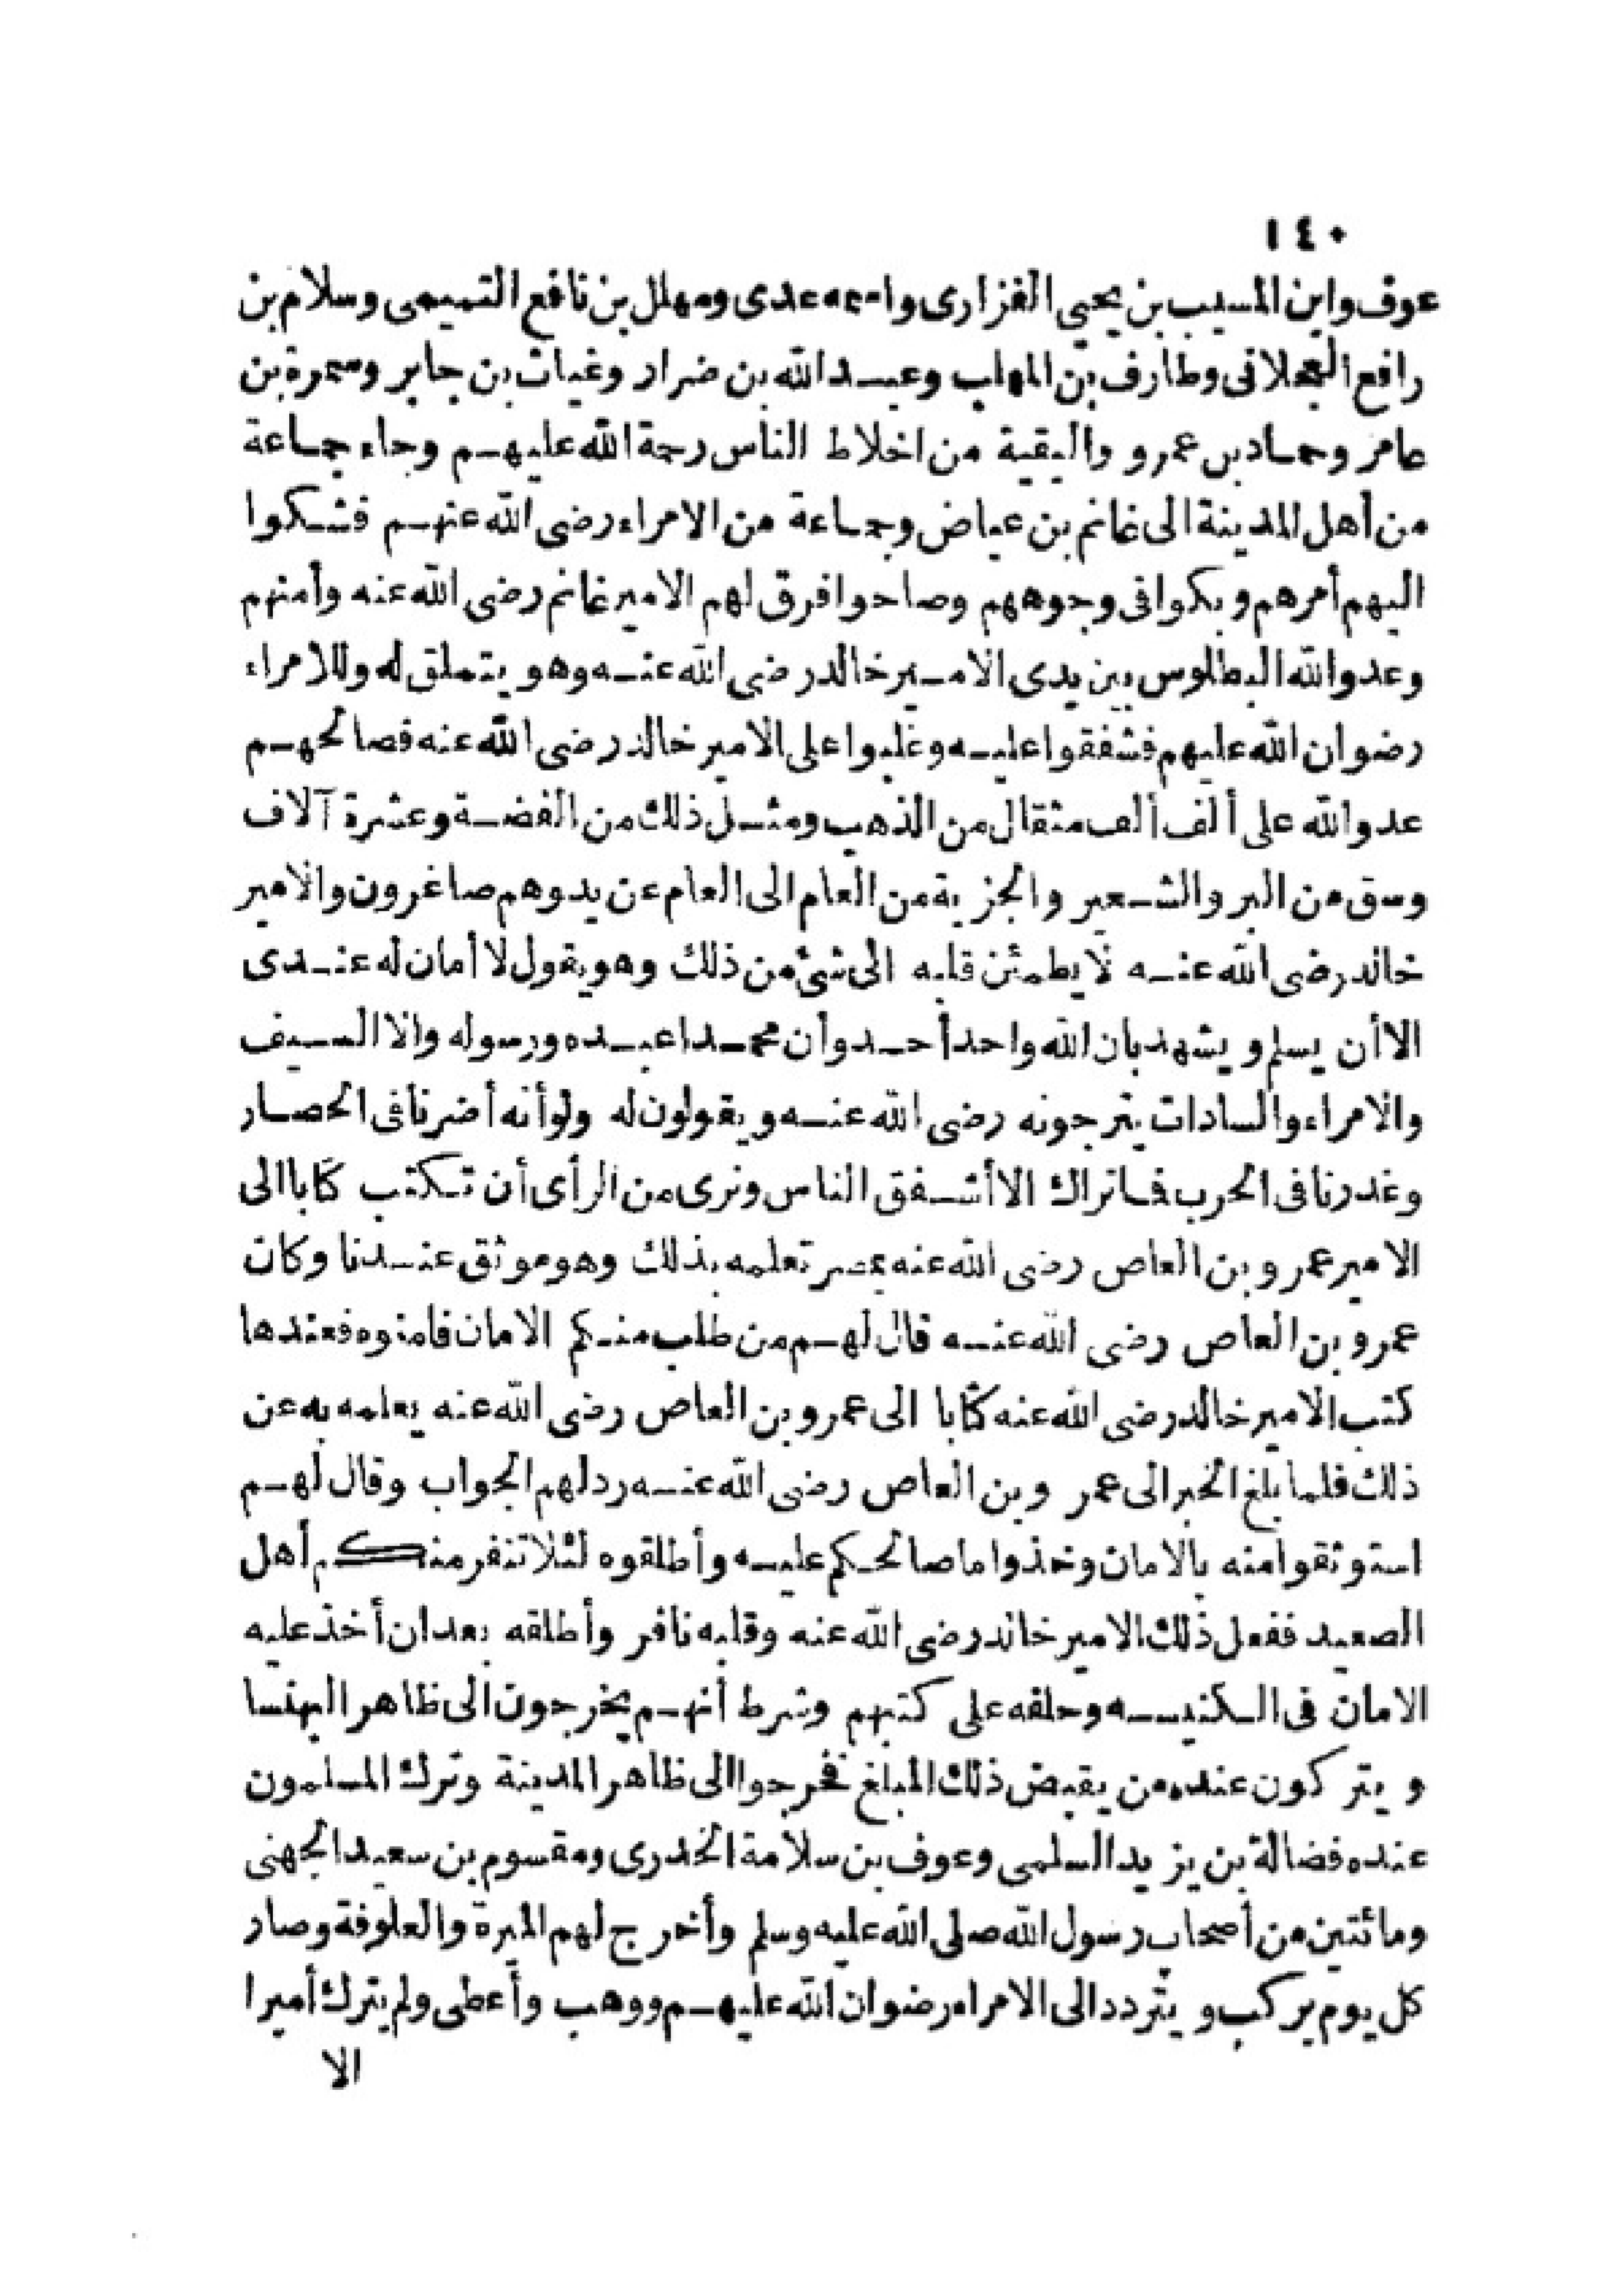 ١٤٠
عوف وابن المسيب بن يحيى الفزارى واسمه عدى ومهلل بن نافع التميمى وسلام بن
رافع العجلانى وطارف بن المهلب وعبد الله بن ضرار وغياث بن جابر وسمرة بن
عامر وحماد بن عمرو والبقية من اخلاط الناس رحمة الله عليهم وجاء جماعة
من أهل المدينة الى غانم بن عياض وجماعة من الامراء رضى الله عنهم فشكوا
اليهم أمرهم وبكوا فى وجوههم وصاحوا فرق لهم الامير غانم رضى الله عنه وأمنهم
وعدو الله البطلوس بين يدى الامير خالد رضى الله عنه وهو يتملق له وللامراء
رضوان الله عليهم فشفقوا عليه وغلبوا على الامير خالد رضى الله عنه فصالحهم
عدو الله على ألف ألف مثقال من الذهب ومثل ذلك من الفضة وعشرة آلاف
وسق من البر والشعير والجزية من العام الى العام عن يد وهم صاغرون والامير
خالد رضى الله عنه لا يطمئن قلبه الى شئ من ذلك وهو يقول لا أمان له عندى
الا أن يسلم ويشهد بان الله واحد أحد وأن محمدا عبده ورسوله والا السيف
والامراء والسادات يترجونه رضى الله عنه ويقولون له ولو أنه أضرنا فى الحصار
وغدرنا فى الحرب فما تراك الا أشفق الناس ونرى من الرأى أن تكتب كتابا الى
الامير عمرو بن العاص رضى الله عنه بمصر تعلمه بذلك وهو موثق عندنا وكان
عمرو بن العاص رضى الله عنه قال لهم من طلب منكم الامان فامنوه فعندها
كتب الامير خالد رضى الله عنه كتابا الى عمرو بن العاص رضى الله عنه يعلمه به عن
ذلك فلما بلغ الخبر الى عمرو بن العاص رضى الله عنه رد لهم الجواب وقال لهم
استوثقوا منه بالامان وخذوا ما صالحكم عليه وأطلقوه لئلا تنفر منكم أهل
الصعيد ففعل ذلك الامير خالد رضى الله عنه وقلبه نافر وأطلقه بعد ان أخذ عليه
الامان فى الكنيسه وحلفه على كتبهم وشرط أنهم يخرجون الى ظاهر البهنسا
ويتركون عنده من يقبض ذلك المبلغ فخرجوا الى ظاهر المدينة وترك المسلمون
عنده فضالة بن يزيد السلمى وعوف بن سلامة الخدرى ومقسوم بن سعيد الجهنى
ومائتين من أصحاب رسول الله صلى الله عليه وسلم وأخرج لهم الميرة والعلوفة وصار
كل يوم يركب ويتردد الى الامراء رضوان الله عليهم ووهب وأعطى ولم يترك أميرا
الا